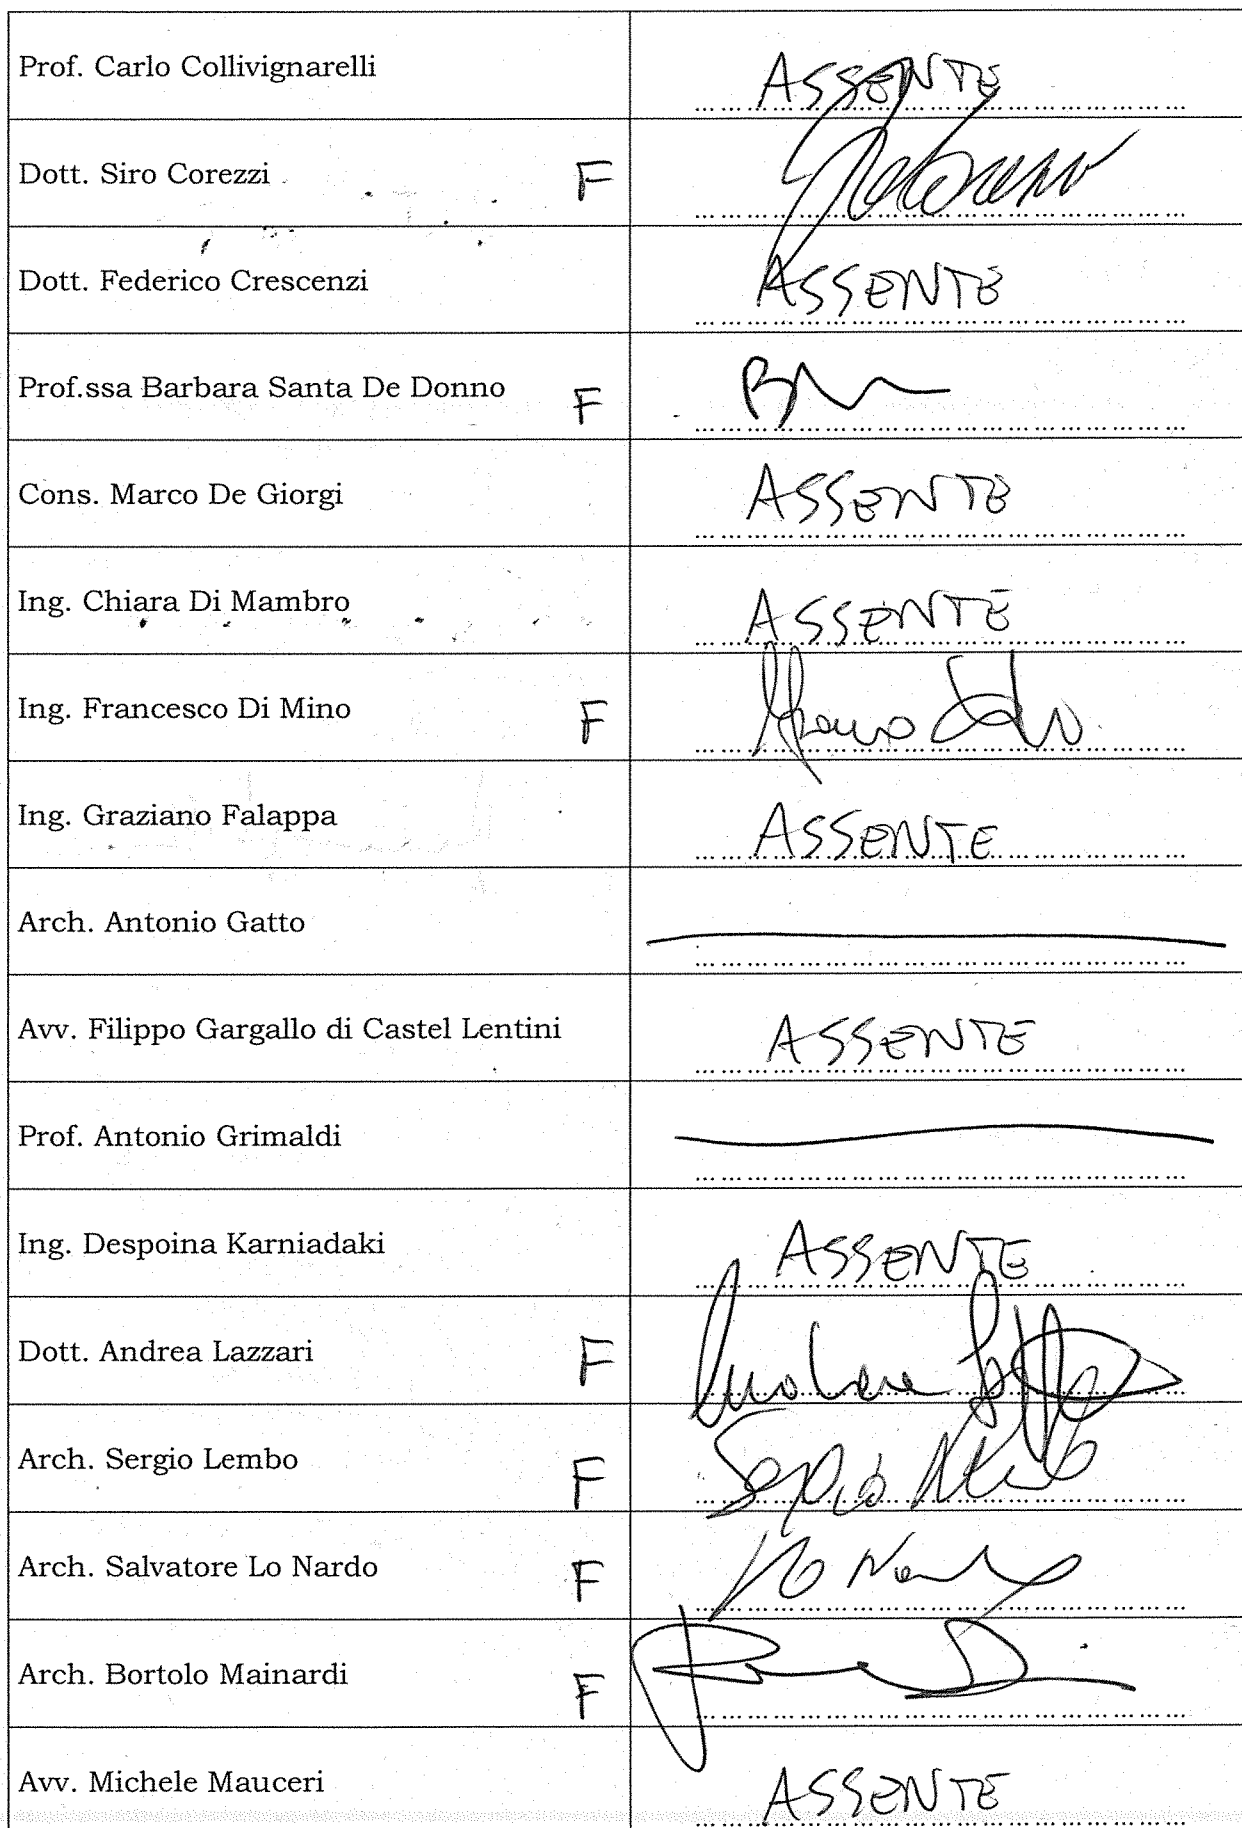 Prof. Carlo Collivignarelli ASSENTE
Dott. Siro Corezzi F
Dott. Federico Crescenzi ASSENTE
Prof.ssa Barbara Santa De Donno F
Cons. Marco De Giorgi ASSENTE
Ing. Chiara Di Mambro ASSENTE
Ing. Francesco Di Mino F
Ing. Graziano Falappa ASSENTE
Arch. Antonio Gatto
Avv. Filippo Gargallo di Castel Lentini ASSENTE
Prof. Antonio Grimaldi
Ing. Despoina Karniadaki ASSENTE
Dott. Andrea Lazzari F
Arch. Sergio Lembo F Sergio
Arch. Salvatore Lo Nardo F Lo Nardo
Arch. Bortolo Mainardi F
Avv. Michele Mauceri ASSENTE